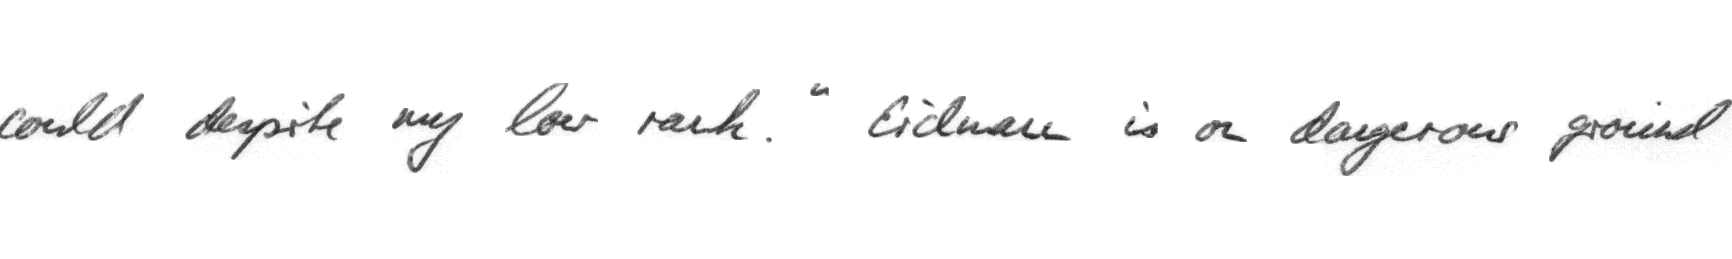 could despite my low rank." Eidman is on dangerous ground